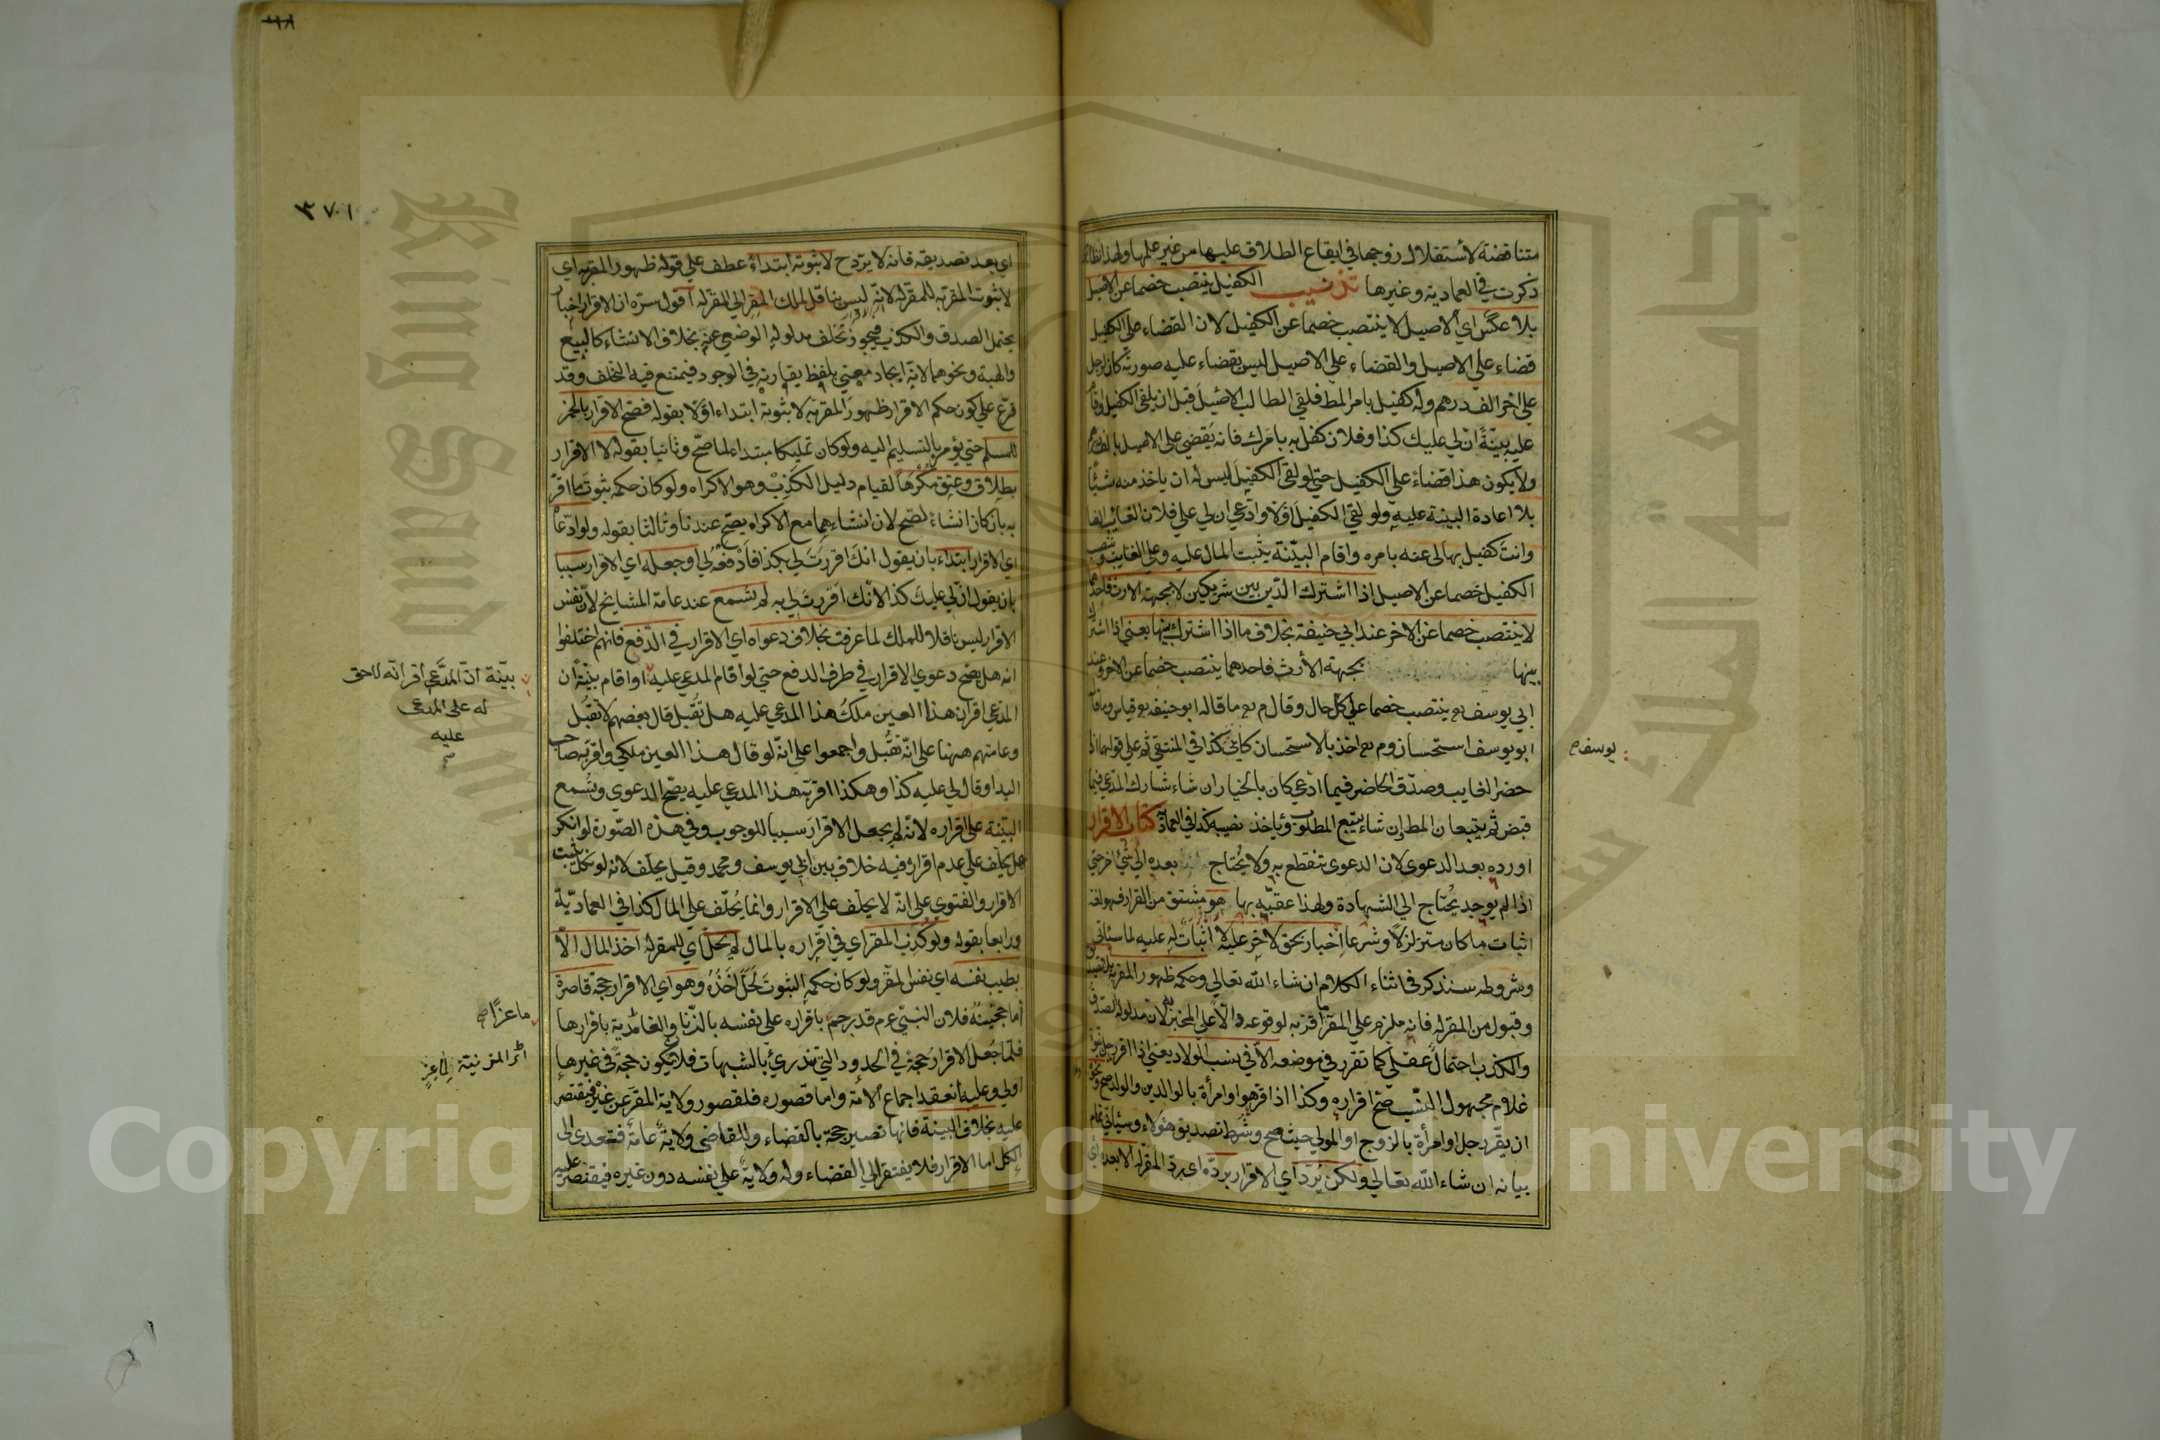 متناقضة لاستقلال زوجها في ايقاع الطلاق عليها من غير علمها ولهذا نظائر
ذكرت في العمادية وغيرها تذنيب الكفيل ينتصب خصما عن الاصيل
بلا عكس اي الاصيل لا ينتصب خصما عن الكفيل لان القضاء على الكفيل
قضاء علي الاصيل والقضاء علي الاصيل ليس بقضاء عليه صورته كان لرجل
علي اخر الف درهم وله كفيل بامر المط فلقي الطالب الاصيل قبل ان يلقى الكفيل واقام
عليه بينة ان لي عليك كذا وفلان كفل به بامرك فانه يقضي على الاصيل بالف درهم
ولا يكون هذا قضاء علي الكفيل حتي لو لقى الكفيل ليس له ان ياخذ منه شيئا
بلا اعادة البينة عليه ولو لقي الكفيل اولا وادعي ان لي علي فلان الغائب الفا
وانت كفيل بها لى عنه بامره واقام البينة يثبت المال عليه وعلى الغايب وينتصب
الكفيل خصما عن الاصيل اذا اشترك الدين بين شريكين لا بجهة الارث فاحدهما
لا ينتصب خصما عن الاخر عند ابي حنيفة بخلاف ما اذا اشترك بينهما يعني اذا اشترك
بينهما بجهة الارث فاحدهما ينتصب خصما عن الاخر وعند
ابي يوسف ينتصب خصما علي كل حال وقال م ما قاله ابو حنيفه قياس وما قال
ابو يوسف استحسان وم اخذ بالاستحسان كابي كذا في المنتقي ثم علي قولهما اذا
حضر الغايب وصدق الحاضر فيما ادعي كان بالخيار ان شاء شارك المدعي فيما
قبض ثم يتبعان المط وان شاء يتبع المطلوب وياخذ نصيبه كذا في العمادية كتاب الاقرار
اورده بعد الدعوى لان الدعوى تنقطع به ولا يحتاج بعده الي شئ اخر حتي
اذا لم يوجد يحتاج الي الشهادة ولهذا عقبه بها هو مشتق من القرار فهو لغة
اثبات ما كان متزلزلا وشرعا اخبار بحق لاخر عليه لا اثبات له عليه لما سيأتي
وشروطه ستذكر في اثناء الكلام ان شاء الله تعالي وحكمه ظهور المقر به بلا تصديق
وقبول من المقر له فانه ملزم علي المقر ما اقر به لوقوعه دالا علي المخبر به لان مدلوله الصدق
والكذب احتمال عقلي كما تقرر في موضعه الا في نسب الولاد يعني اذا اقر رجل ببنوة
غلام مجهول النسب صح اقراره وكذا اذا اقر هو او امرأة بالوالدين والولد صح ونحو
ان يقر رجل او امرأة بالزوج او المولي حيث صح وشرط تصديق هؤلاء وسيأتي تمام
بيانه ان شاء الله تعالي ولكن يرد اي الاقرار برده اي برد المقر له الا بعده اي
يوسف م
٣٧١
اي بعد تصديقه فانه لا يرتد ح لا ثبوته ابتداء عطف علي قوله ظهور المقر به اي
لا ثبوت المقر به للمقر له لانه ليس بناقل لملك المقر الي المقر له اقول سره ان الاقرار اخبار
يحتمل الصدق والكذب فيجوز تخلف مدلوله الوضعي عنه بخلاف الانشاء كالبيع
والهبة ونحوهما لانه ايجاد معني بلفظ يقارنه في الوجود فيمتنع فيه التخلف وقد
فرع علي كون حكم الاقرار ظهور المقر به لا ثبوته ابتداء اولا بقوله فصح الاقرار بالخمر
للمسلم حتي يؤمر بالتسليم اليه ولو كان تمليكا مبتداء لما صح وثانيا بقوله لا الاقرار
بطلاق وعتق مكرها لقيام دليل الكذب وهو الاكراه ولو كان حكمه ثبوت ما اقر
به بان كان انشاء لصح لان انشاءهما مع الاكراه يصح عندنا وثالثا بقوله ولو ادعا
اي الاقرار ابتداء بان يقول انك اقررت لي بكذا فادفعه لي او جعله اي الاقرار سببا
بان يقول ان لي عليك كذا لانك اقررت لي به لم يسمع عند عامة المشايخ لان نفس
الاقرار ليس ناقلا للملك لما عرفت بخلاف دعواه اي الاقرار في الدفع فانهم اختلفوا
انه هل يصح دعوي الاقرار في طرف الدفع حتي لو اقام المدعى عليه او اقام بينة ان
المدعي اقر ان هذا العين ملك هذا المدعي عليه هل تقبل قال بعضهم لا تقبل
وعامتهم ههنا علي انه تقبل واجمعوا علي انه لو قال هذا العين ملكي واقر به صاحب
اليد او قال لي عليه كذا وهكذا اقر به هذا المدعي عليه يصح الدعوي وتسمع
البينة على اقراره لانه لم يجعل الاقرار سببا للوجوب وفي هذه الصورة لو انكر
هل يحلف علي عدم اقراره فيه خلاف بين ابي يوسف ومحمد وقيل يحلف لانه لو نكل يثبت
الاقرار والفتوي علي انه لا يحلف علي الاقرار وانما يحلف علي المال كذا في العمادية
ورابعا بقوله ولو كذب المقر اي في اقراره بالمال لم يحل اي للمقر له اخذ المال الا
بطيب نفسه اي نفس المقر ولو كان حكمه الثبوت لحل اخذه وهو اي الاقرار حجة قاصرة
اما حجيته فلان النبي عم قد رجم باقراره علي نفسه بالزنا والغامدية باقرارها
فلما جعل الاقرار حجة في الحدود التي تندرئ بالشبهات فلان يكون حجة في غيرها
اولي وعليه انعقد اجماع الامة واما قصوره فلقصور ولاية المقر عن غيره فيقتصر
عليه بخلاف البينة فانها تصير حجة بالقضاء وللقاضي ولاية عامة فتتعدى الى
الكل اما الاقرار فلا يفتقر الي القضاء وله ولاية علي نفسه دون غيره فيقتصر عليه
بينة ان المدعى اقر انه لا حق
له على المدعى
عليه
ماعزا
Copyright © King Saud University
King Saud University